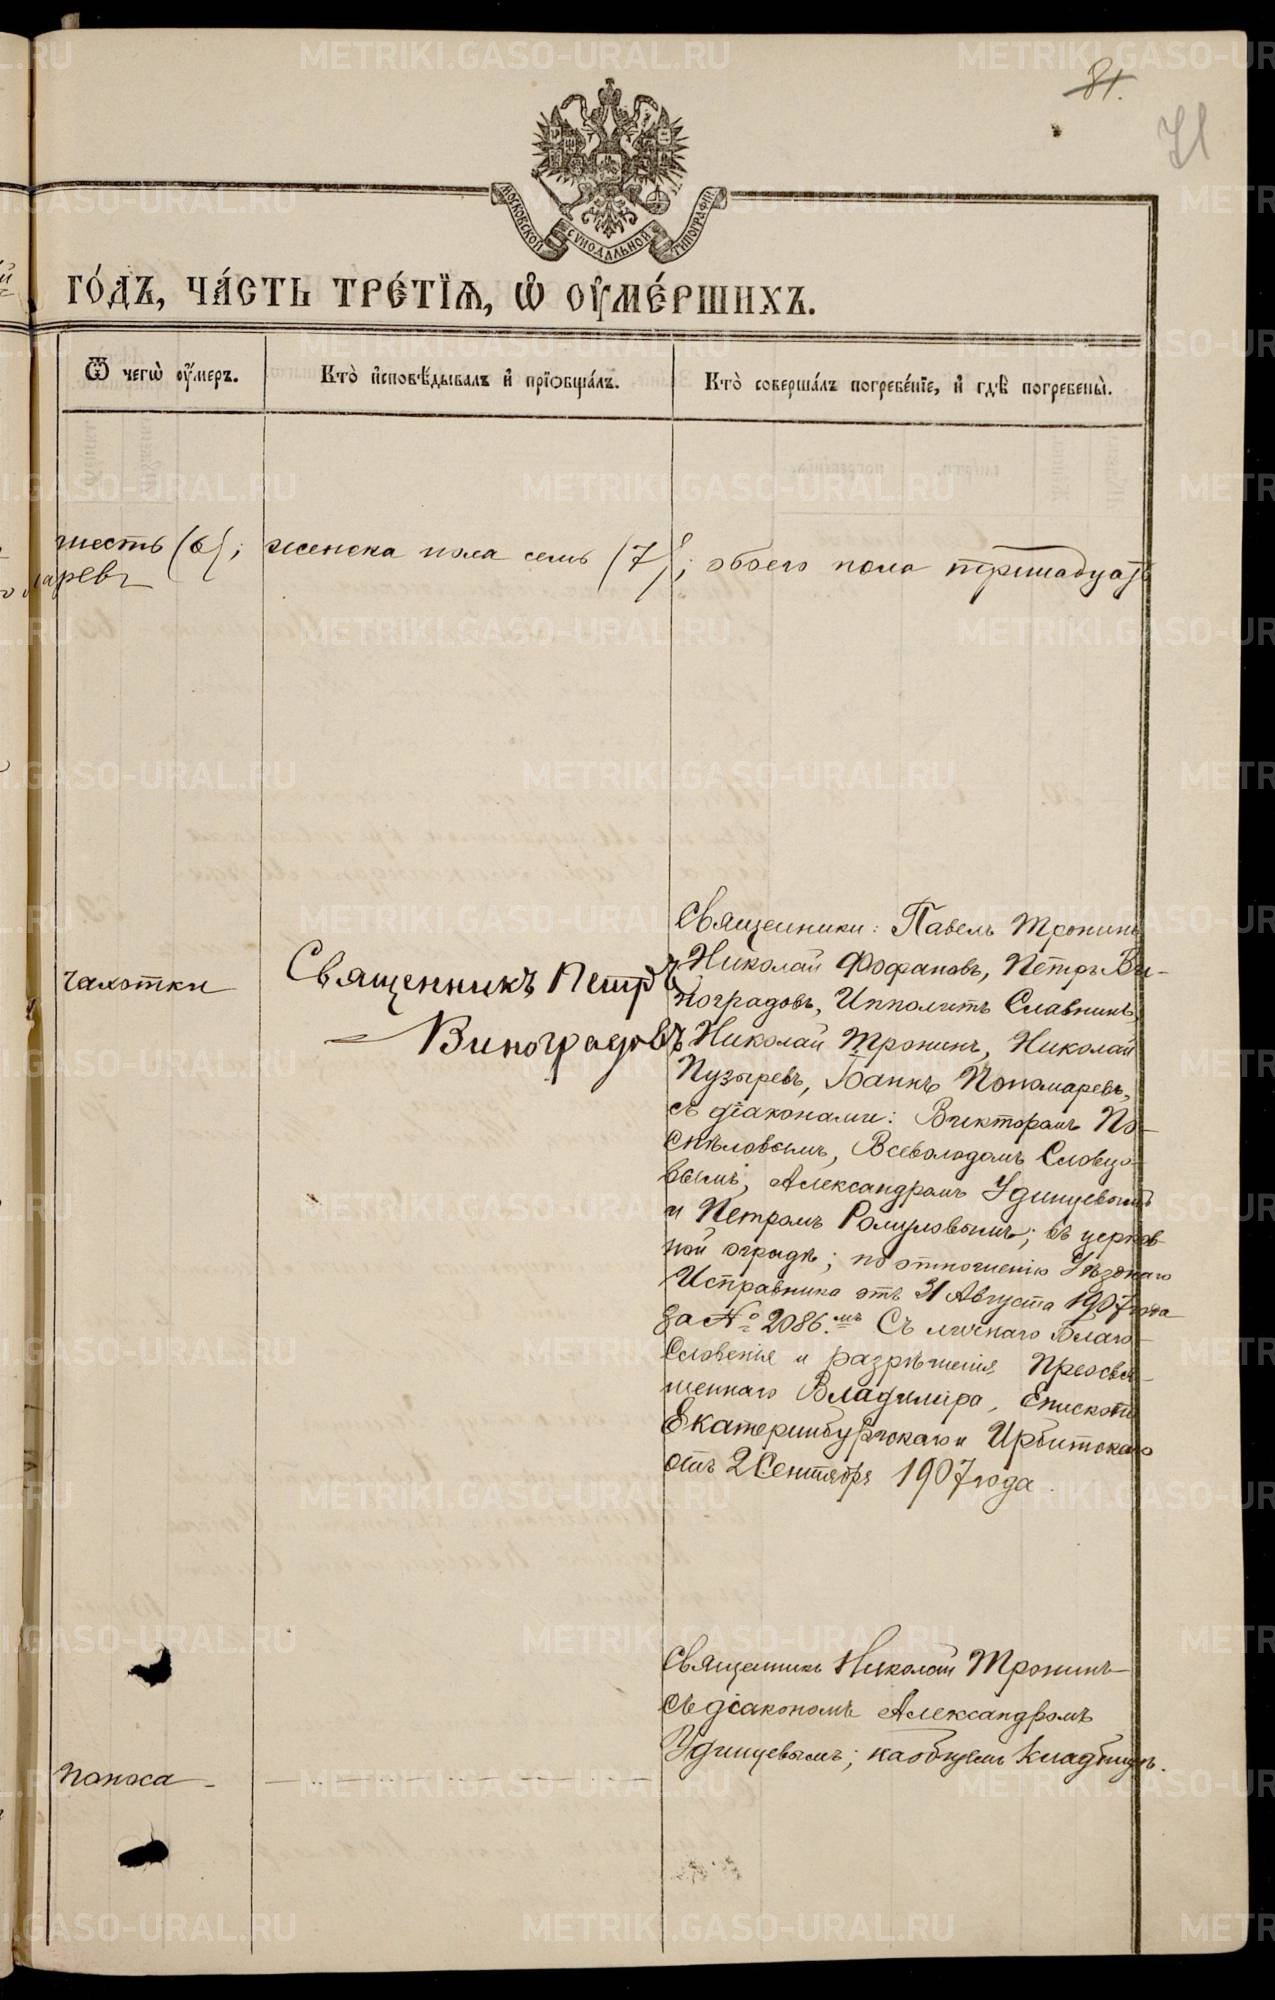 81.
71
МОСКОВСКОЙ СѴНОДАЛЬНОЙ ТИПОГРАФІИ
ГО́ДЪ, ЧА́СТЬ ТРЕ́ТІѦ, Ѡ҆ ОУ҆МЕ́РШИХЪ.
Ѿ чегѡ̀ оу҆́меръ.
Кто̀ и҆сповѣ́дывалъ и҆ прїобща́лъ.
Кто̀ соверша́лъ погребе́нїе, и҆ гдѣ̀ погребены̀.
шесть (6); женска пола семь (7); обоего пола тринадцать
Священники: Павелъ Тронинъ
Николай Фофановъ, Петръ Ви-
ноградовъ, Ипполитъ Славнинъ,
Николай Тронинъ, Николай
Пузыревъ, Іоаннъ Пономаревъ,
съ діаконами: Викторомъ По-
спѣловымъ, Всеволодомъ Словцо-
вымъ, Александромъ Удинцевымъ
и Петромъ Ромуловымъ; въ церков-
ной оградѣ; по отношенію Уѣзднаго
Исправника отъ 31 Августа 1907 года
За № 2086.мъ Съ личнаго Благо-
словенія и разрѣшенія Преосвя-
щеннаго Владиміра, Епископа
Екатеринбургскаго и Ирбитскаго
отъ 2 Сентября 1907 года.
чахотки
Священникъ Петръ
Виноградовъ
Священникъ Николай Тронинъ
съ діакономъ Александромъ
Удинцевымъ; на общемъ кладбищѣ.
поноса
METRIKI.GASO-URAL.RU